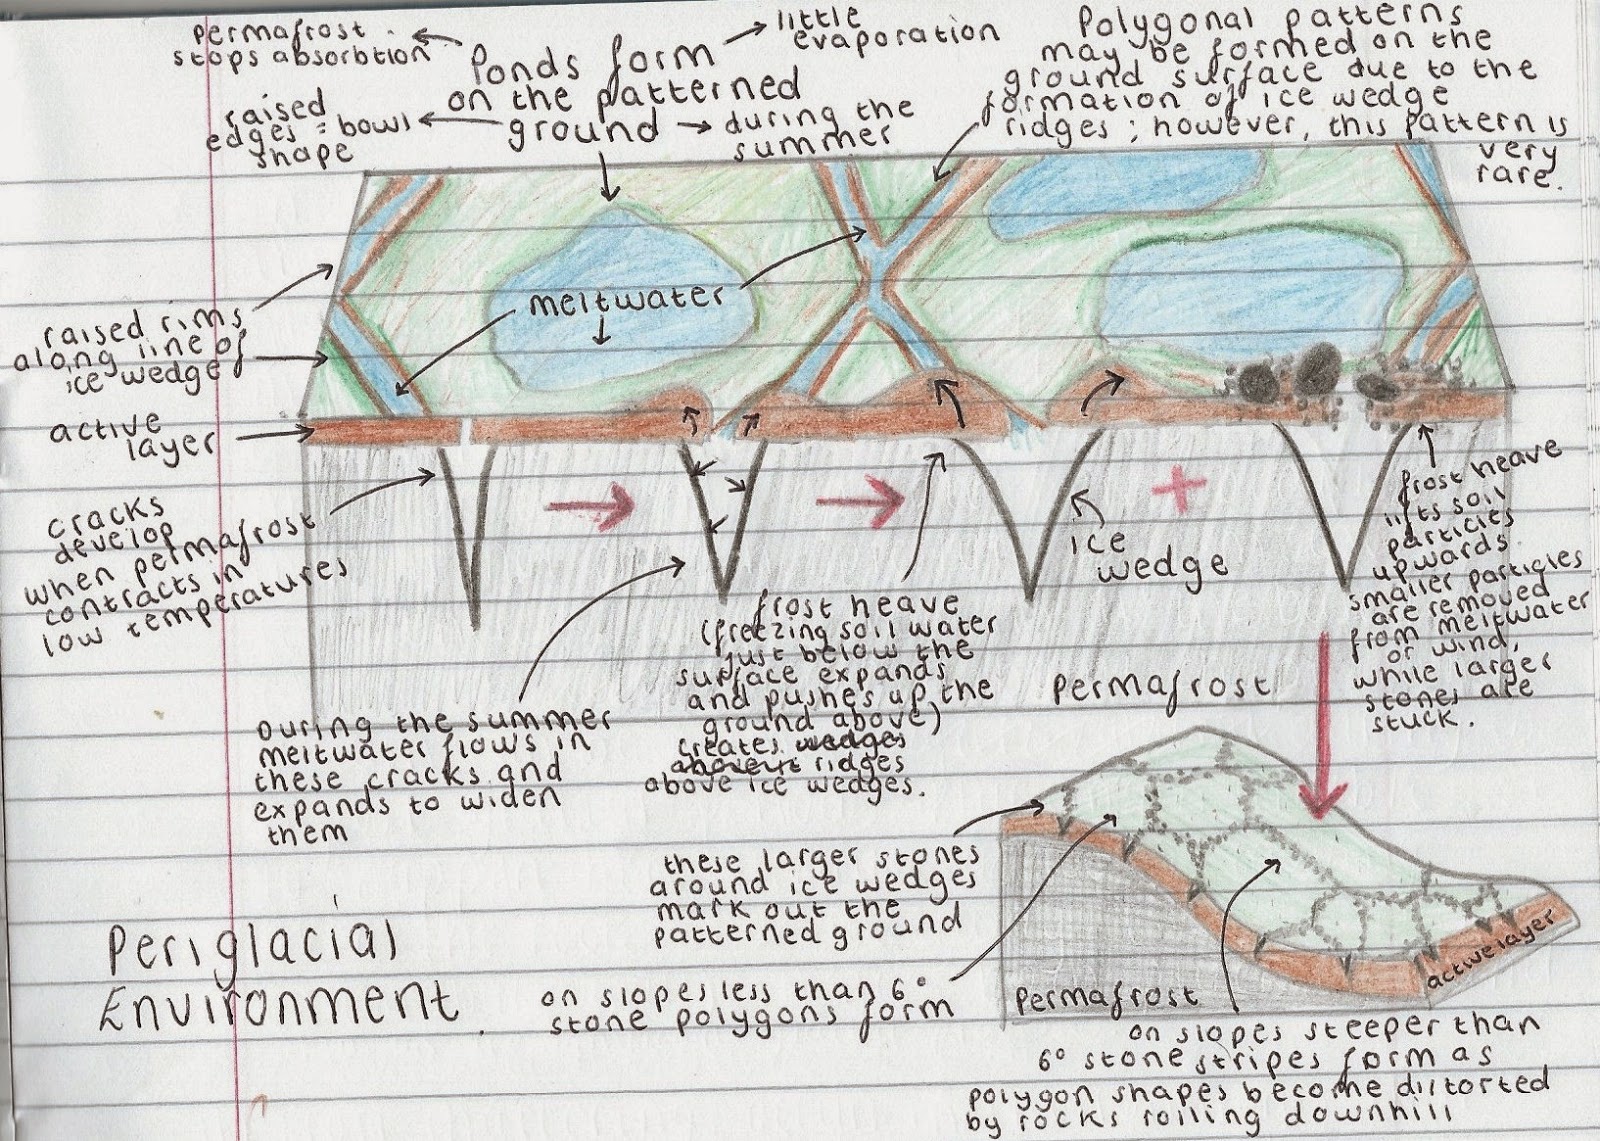 permafrost
stops absorbtion
Ponds form
on the patterned
ground
little
evaporation
raised
edges = bowl
shape
during the
summer
Polygonal patterns
may be formed on the
ground surface due to the
formation of ice wedge
ridges ; however, this pattern is
very
rare.
meltwater
raised rims
along line of
ice wedge
active
layer
cracks
develop
when permafrost
contracts in
low temperatures
During the summer
meltwater flows in
these cracks and
expands to widen
them
frost heave
(freezing soil water
just below the
surface expands
and pushes up the
ground above)
creates wedges
ridges
above ice wedges.
ice
wedge
+
Permafrost
frost heave
lifts soil
particles
upwards.
smaller particles
are removed
from meltwater
or wind,
while larger
stones are
stuck.
these larger stones
around ice wedges
mark out the
patterned ground
on slopes less than 6°
stone polygons form
Permafrost
active layer
on slopes steeper than
6° stone stripes form as
polygon shapes become distorted
by rocks rolling downhill
Periglacial
Environment.